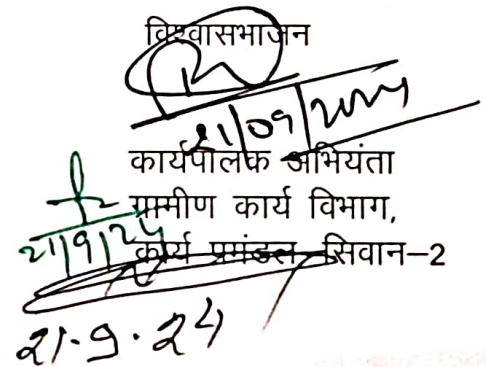 विश्वासभाजन
21/09/2024
कार्यपालक अभियंता
ग्रामीण कार्य विभाग,
21/9/24
कार्य प्रमंडल सिवान-2
21.9.24